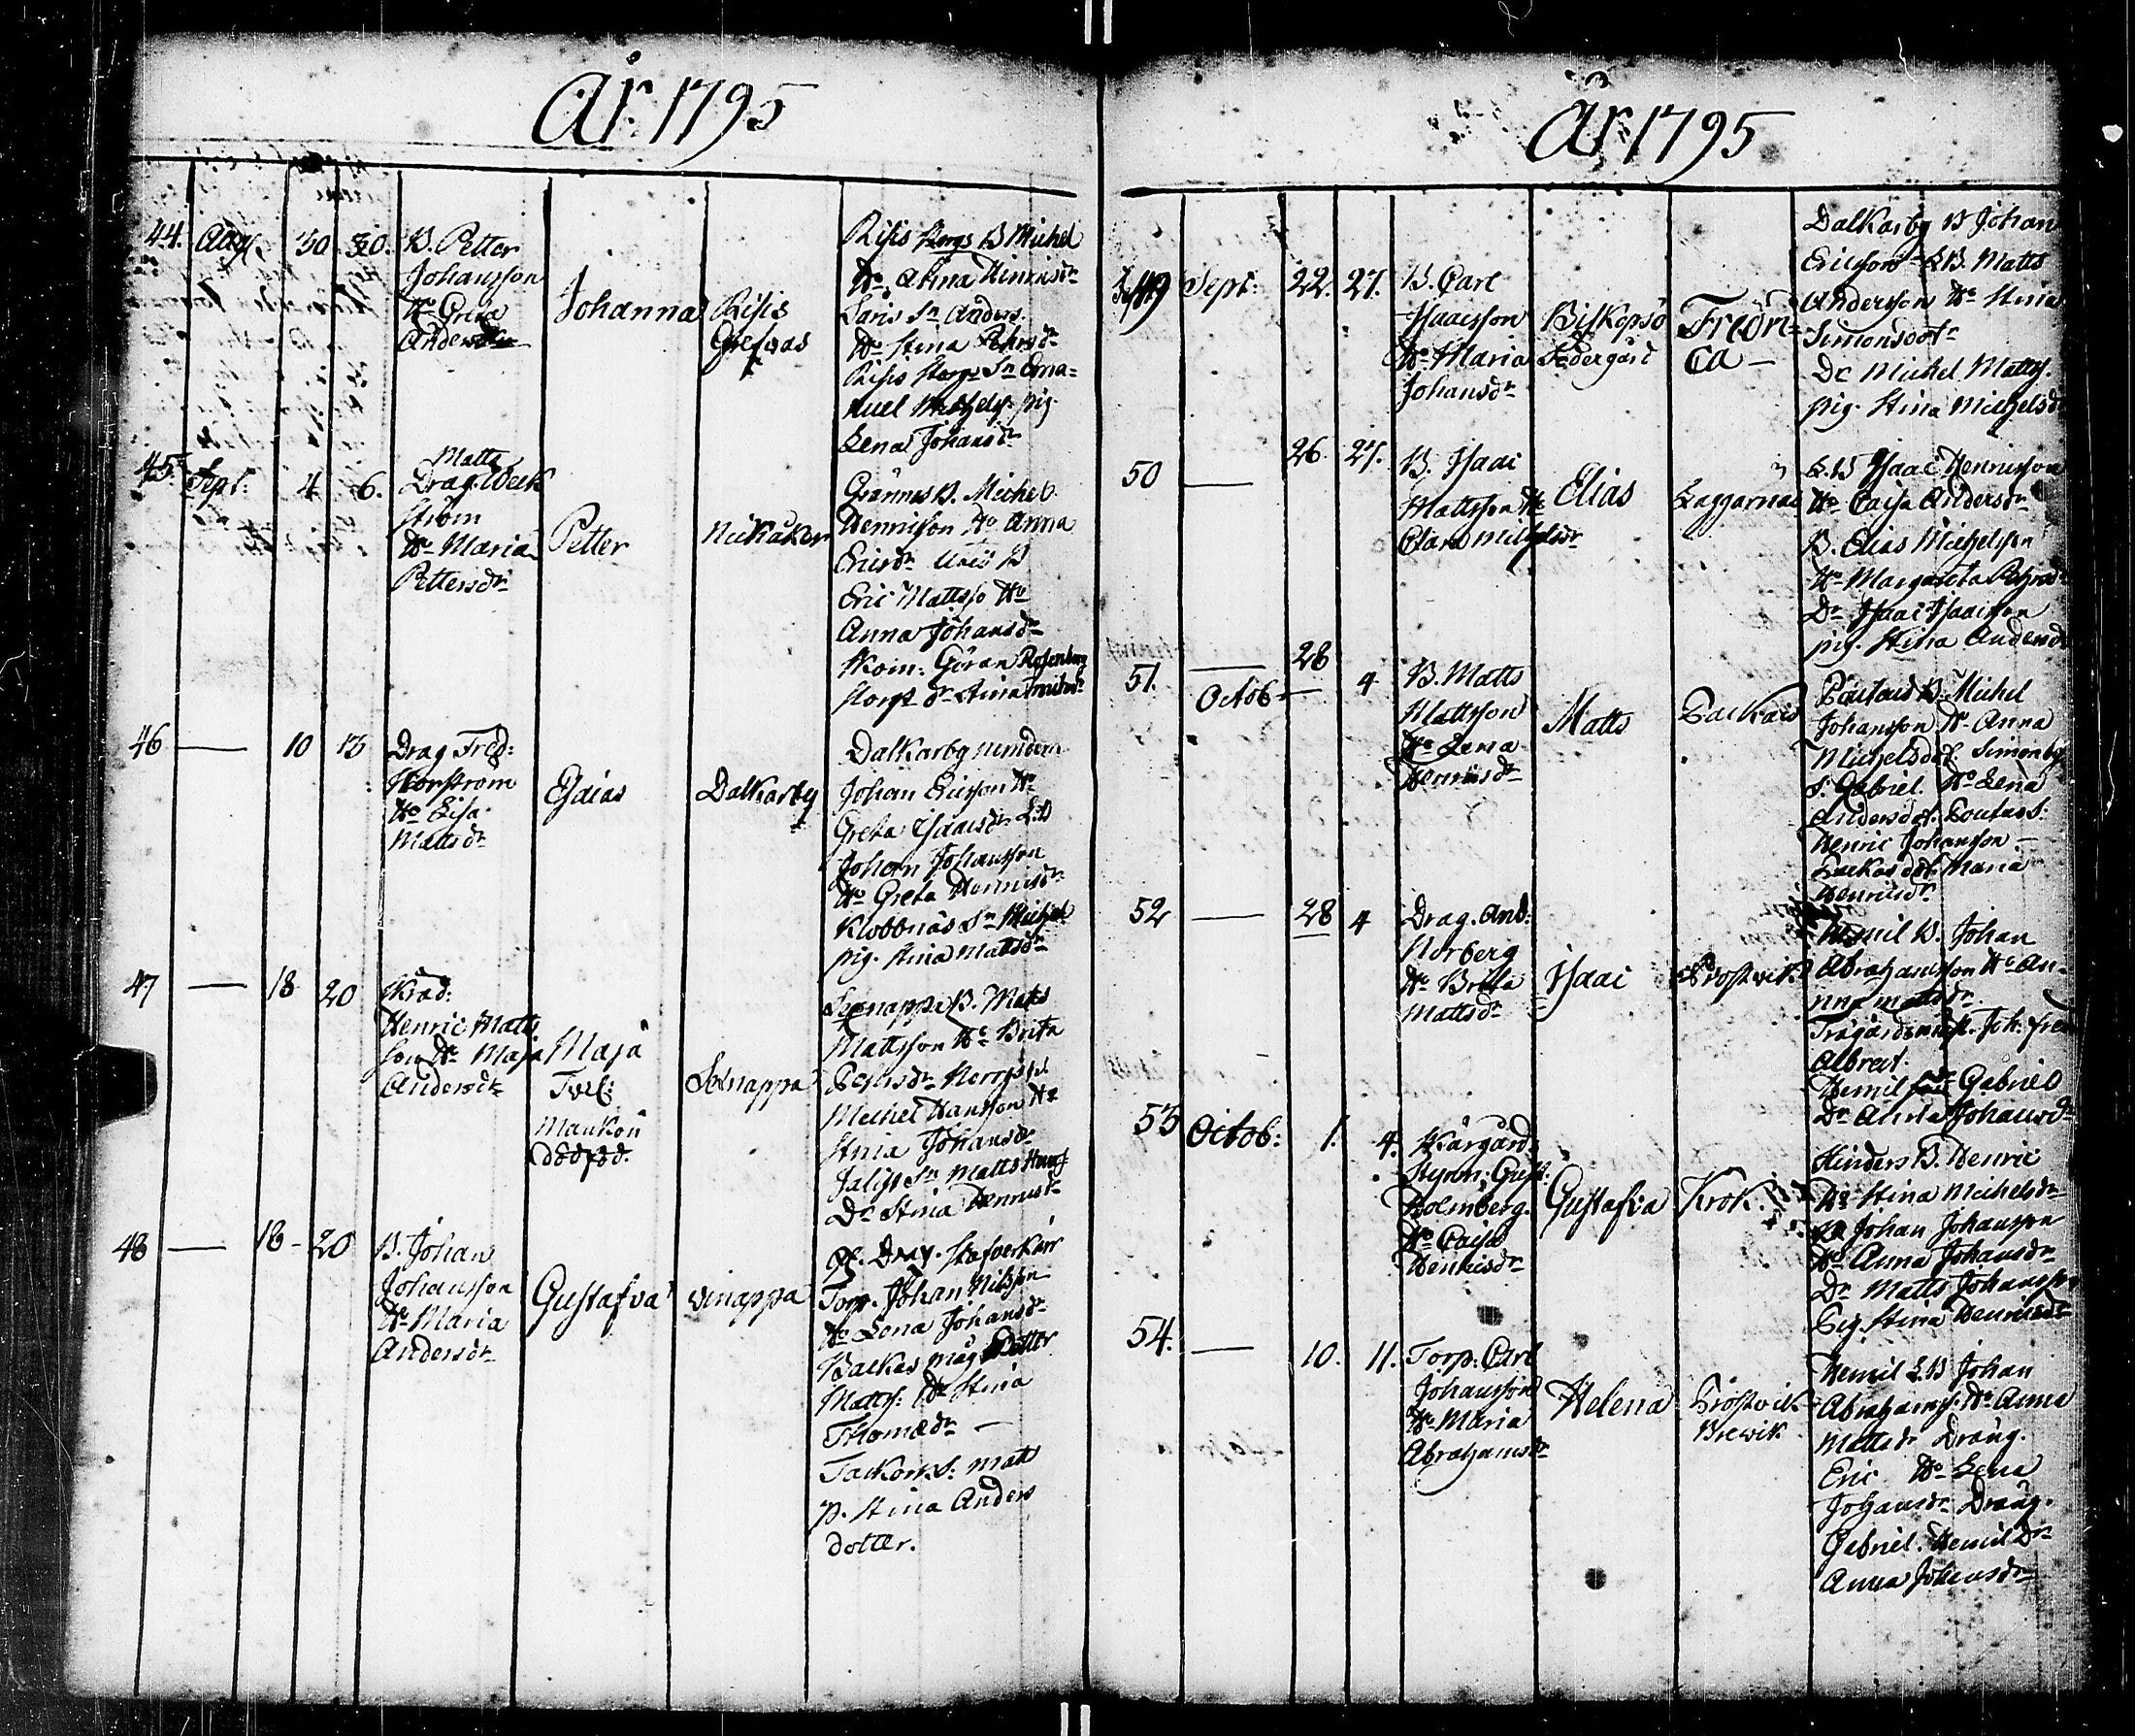 år 1795
44. Aug. 30 30. B. Petter
Johansson
Ho Greta
Andersdr
Johanna
Risis
Grefsas
Risis Storgs B Michel
Ho Anna Hinricsdr
Sn Anders.
Ho Stina Pehrsdr
Risis Storgs Sn Ema=
nuel Michelss. pig
Lena Johansdr
45. Sept: 4 6. Matts
Drag. Week
ström
Ho Maria
Pettersdr
Petter
Grännas B. Michel
Henrisson Ho Anna
Ericsdr B
Eric Mattsso Ho
Anna Johansdr
Skom: Göran Rosenberg
Storgs dr Stina
46 — 10 13 Drag Fred:
Ho Lisa
Mattsdr
Esaias
Dalkarby
Dalkarby nemdem
Johan Ericsson Ho
Greta Isaacsdr LB
Johan Johansson
Ho Greta Henricsdr
Klobbnäs Sn Michel
pig. Stina Mattsdr
47 — 18 20 Skräd:
Henric Matts
son Ho Maja
Andersdr
Maja
Tvel:
Mankön
dödföd.
Sexnappa
Sexnappa B. Matts
Mattsson Ho Brita
Michel Hansson Ho
Stina Johansdr
Sn Matts
Dr Stina Henricsdr
48 — 18 – 20 B. Johan
Johansson
Ho Maria
Andersdr
Gustafva
vinappa
Torp. Johan Nilsson
Ho Lena Johansdr
Backas måg Petter
Matts: Ho Stina
Thomædr —
Tackork S: Matts
p. Stina Anders
dotter.
år 1795
49 Sept: 22. 27. B. Carl
Isaacsson
Ho Maria
Johansdr
Biskopsö
Södergård
Fredri=
ca —
Dalkarby B Johan
Ericsson LB. Matts
Andersson Ho Stina
Simonsdotr
Dr Michel Mattss.
pig. Stina Michelsdr
50 — 26 27. B. Isaac
Mattsson Ho
Clara Michelsdr
Elias
Laggarnäs
LB Isaac Henricsson
Ho Caisa Andersdr
B. Elias Michelsson
Ho Margareta Pehrsdr
Dr Isaac Isaacsson
pig. Stina Andersdr
51. — 28
Octob — 4 B. Matts
Mattsson
Ho Lena
Henricsdr
Matts
Backas
B. Michel
Johansson Ho Anna
Michelsdot. Simonby
S: Gabriel. Ho Lena
Andersdot.
Henric Johansson —
Backas dot. Maria
Henricsdr
52 — 28 4 Drag. And:
Norberg
Ho Brita
Mattsdr
Isaac
Bröstvik
Hemil B. Johan
Abrahamsson Ho An=
na Mattsdr.
Trägårdsmäst. Joh: Fred
Albrect.
Hemil Gabriel
Dr Anna Johansdr
53 Octob: 1. 4. Skärgårds
Styrm: Gust:
Holmberg.
Ho Caisa
Henricsdr
Gustafva
Krok.
Hinders B. Henric
Ho Stina Michelsdr
Johan Johansson
Ho Anna Johansdr
Dr Matts Johansson
Pig. Stina Henricsdr
54. — 10. 11. Torp: Carl
Johansson
Ho Maria
Abrahamsdr
Helena
Bröstvik
Brewik
Hemil LB Johan
Abrahamss: Ho Anna
Mattsdr Dräng.
Eric Ho Lena
Johansdr Dräng.
Gabriel. Hemil Dr
Anna Johansdr